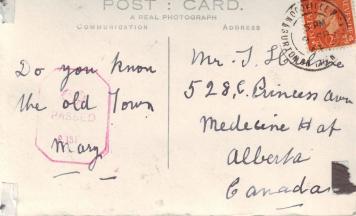 POST : CARD.
A REAL PHOTOGRAPH
COMMUNICATION
ADDRESS
Do you know
the old Town
Mary
PASSED
Mr. J.
528, E. Princess Ave
Medecine Hat
Alberta
Canada